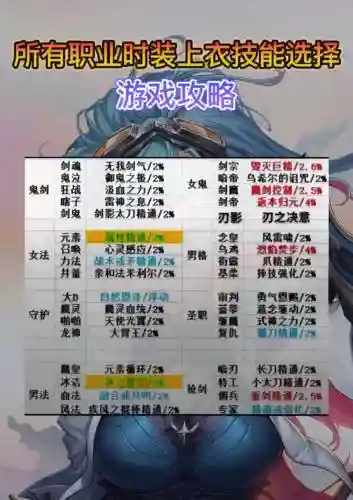 所有职业时装上衣技能选择
游戏攻略
鬼剑
剑魂 无我剑气/2%
鬼泣 御鬼之骰/2%
狂战 汲血之力/2%
瞎子 雷神之息/2%
剑鬼 剑影太刀精通/2%
女鬼
剑宗 毁灭巨精/2.5%
暗帝 乌希尔的诅咒/2%
剑魔 魔剑控制/2.5%
剑帝 返本归元/4%
刃影 刃之决意
女法
元素 属性精通/2%
召唤 心灵感应/2%
力法 战术或矛精通/2%
井董 亲和法米利尔/2%
男格
念皇 风雷啸/2%
鸟鸿 烈焰焚步/4%
街霸 爪精通/2%
基柔 摔技强化/2%
守护
大D
魔灵 魔灵血统/2%
啪啪 天使光翼/2%
龙神 大胃王/2%
圣职
审判 勇气恩赐/2%
蓝拳 意念驱动/2%
驱魔 式神之力/2%
复仇 镰刀精通/2%
男法
魔皇 元素循环/2%
冰洁
血法
风法 疾风之棍棒精通/2%
枪剑
暗刃 长刀精通/2%
特工 小太刀精通/2%
佣兵 重剑精通/2.5%
专家